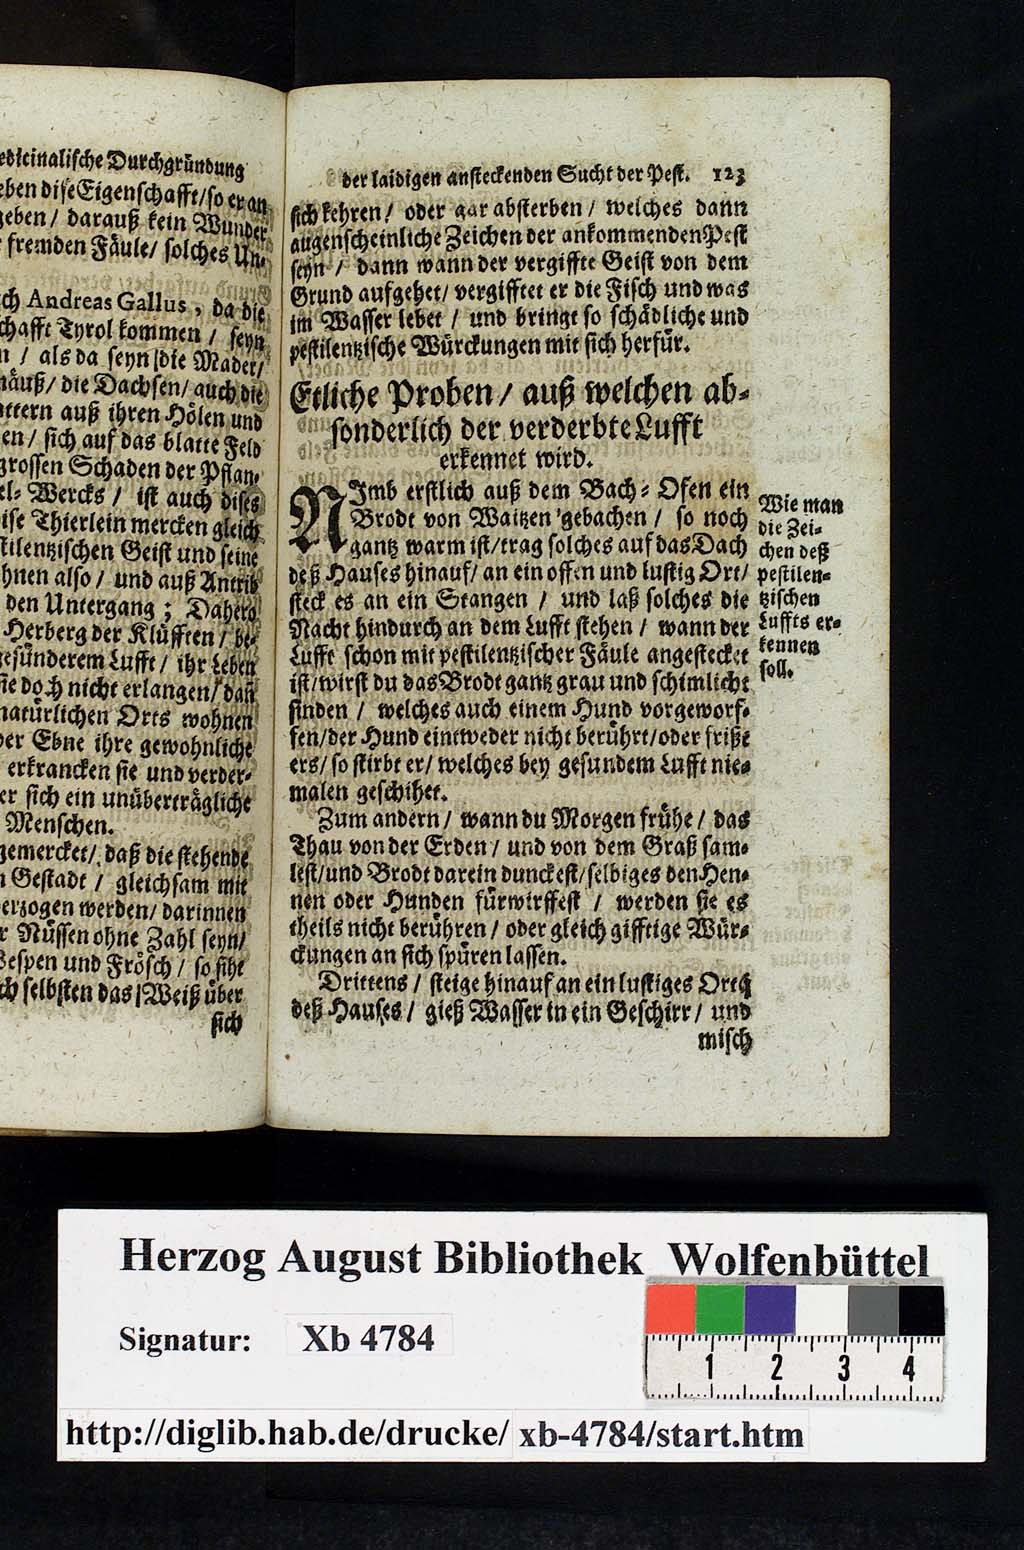 edicinalische Durchgründung
eben dise Eigenschafft / so er an
geben / darauß kein Wunder
fremden Fäule / solches Un-
ch Andreas Gallus, da die
chafft Tyrol kommen / seyn
n / als da seyn / die Mader /
näuß / die Dachsen / auch die
attern auß ihren Hölen und
en / sich auf das blatte Feld
grossen Schaden der Pflan-
el-Wercks / ist auch dises
ise Thierlein mercken gleich
tilentzischen Geist und seine
hnen also / und auß Antrib
den Untergang; Dahero
Herberg der Klüfften / be-
esünderem Lufft / ihr Leben
sie doch nicht erlangen / dañ
natürlichen Orts wohnen
der Ebne ihre gewohnliche
erkrancken sie und verder-
er sich ein unüberträgliche
Menschen.
gemercket / daß die stehende
n Gestadt / gleichsam mit
erzogen werden / darinnen
r Nüssen ohne Zahl seyn /
Wespen und Frösch / so siht
ch selbsten das Weiß über
sich
der laidigen ansteckenden Sucht der Pest. 123
sich kehren / oder gar absterben / welches dann
augenscheinliche Zeichen der ankommenden Pest
seyn / dann wann der vergiffte Geist von dem
Grund aufgehet / vergifftet er die Fisch und was
im Wasser lebet / und bringt so schädliche und
pestilentzische Würckungen mit sich herfür.
Etliche Proben / auß welchen ab-
sonderlich der verderbte Lufft
erkennet wird.
NImb erstlich auß dem Bach-Ofen ein
Brodt von Waitzen gebachen / so noch
gantz warm ist / trag solches auf das Dach
deß Hauses hinauf / an ein offen und lustig Ort /
steck es an ein Stangen / und laß solches die
Nacht hindurch an dem Lufft stehen / wann der
Lufft schon mit pestilentzischer Fäule angestecket
ist / wirst du das Brodt gantz grau und schimlicht
finden / welches auch einem Hund vorgeworf-
fen / der Hund eintweder nicht berührt / oder frißt
ers / so stirbt er / welches bey gesundem Lufft nie-
malen geschihet.
Zum andern / wann du Morgen frühe / das
Thau von der Erden / und von dem Graß sam-
lest / und Brodt darein dunckest / selbiges den Hen-
nen oder Hunden fürwirffest / werden sie es
theils nicht berühren / oder gleich gifftige Wür-
ckungen an sich spüren lassen.
Drittens / steige hinauf an ein lustiges Ort
deß Hauses / gieß Wasser in ein Geschirr / und
misch
Wie man
die Zei-
chen deß
pestilen-
tzischen
Luffts er-
kennen
soll.
Herzog August Bibliothek Wolfenbüttel
Signatur: Xb 4784
1 2 3 4
http://diglib.hab.de/drucke/ xb-4784/start.htm